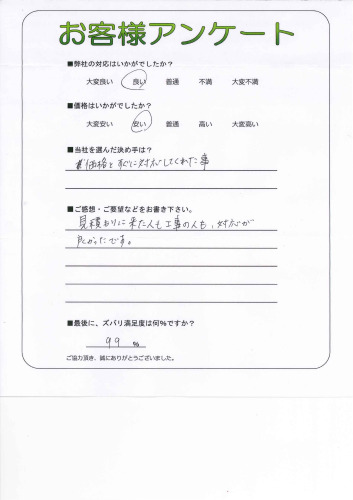 お客様アンケート
■弊社の対応はいかがでしたか？
大変良い 良い 普通 不満 大変不満
■価格はいかがでしたか？
大変安い 安い 普通 高い 大変高い
■当社を選んだ決め手は？
価格とすぐに対応してくれた事
■ご感想・ご要望などをお書き下さい。
見積もりに来た人も工事の人も、対応が
良かったです。
■最後に、ズバリ満足度は何％ですか？
99 %
ご協力頂き、誠にありがとうございました。